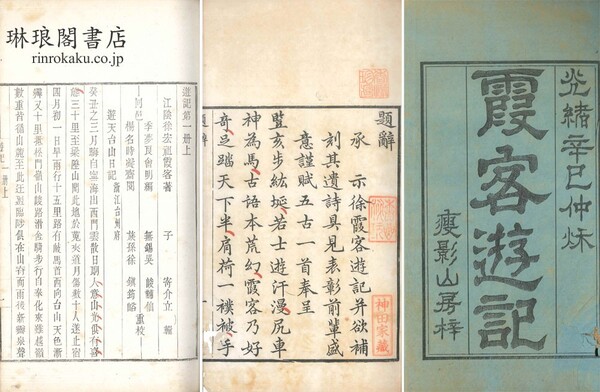 琳琅閣書店
rinrokaku.co.jp
光緒辛巳仲秌
霞客遊記
瘦影山房梓
題辭
承 示徐霞客遊記并欲補
刻其遺詩具見表彰前輩盛
意謹賦五古一首奉呈
豎亥步紘埏若士遊汗漫尻車
神為馬古語本荒幻霞客乃好
奇足踏天下半肩荷一襆被手
題辭
神田家藏
遊記第一册上
江陰徐宏祖霞客著 子 寄介立 編
楊名時凝齋閱 族孫徐 鎮筠峪 重校
遊天台山日記 浙江台州府
癸丑之三月晦自寧海出西門雲散日朗人意山光俱有喜
態三十里至梁隍山聞此地於菟夾道月傷數十人遂止宿
四月初一日早雨行十五里路有岐馬首西向台山天色漸
霽又十里抵松門嶺山峻路滑舍騎步行自奉化來雖越嶺
數重皆循山麓至此迂迴臨陟俱在山脊而雨後新霽泉聲